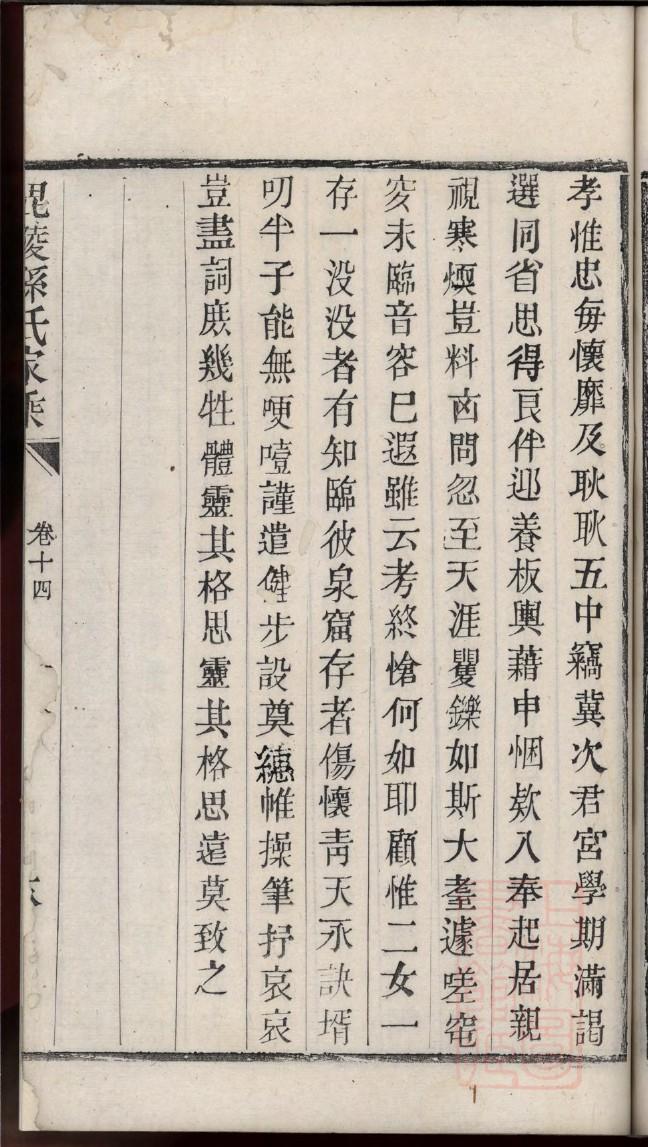 孝惟忠每懷靡及耿耿五中竊冀次君宮學期滿謁
選同省思得良伴迎養板輿藉申悃欵入奉起居親
視寒煗豈料㐫問忽至天涯矍鑠如斯大耋遽嗟窀
穸未臨音容已遐雖云考終愴何如耶顧惟二女一
存一没没者有知臨彼泉窟存者傷懷靑天永訣壻
叨半子能無哽噎謹遣健步設奠繐帷操筆抒哀哀
豈盡詞庶幾牲體靈其格思靈其格思遠莫致之
毘陵孫氏家乘
卷十四